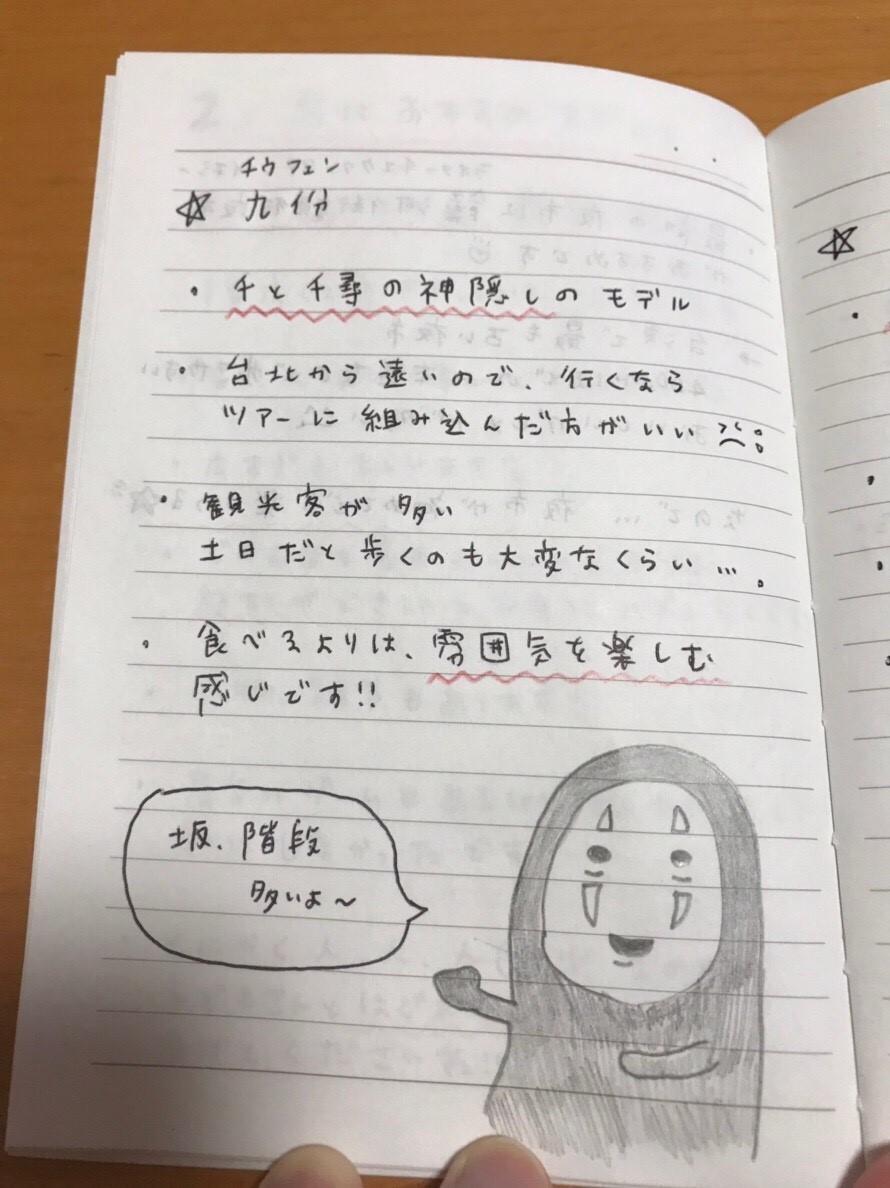 チウフェン
☆ 九份
・千と千尋の神隠しのモデル
・台北から遠いので、行くなら
ツアーに組み込んだ方がいい
・観光客が多い
土日だと歩くのも大変なくらい…。
・食べるよりは、雰囲気を楽しむ
感じです!!
坂、階段
多いよ～